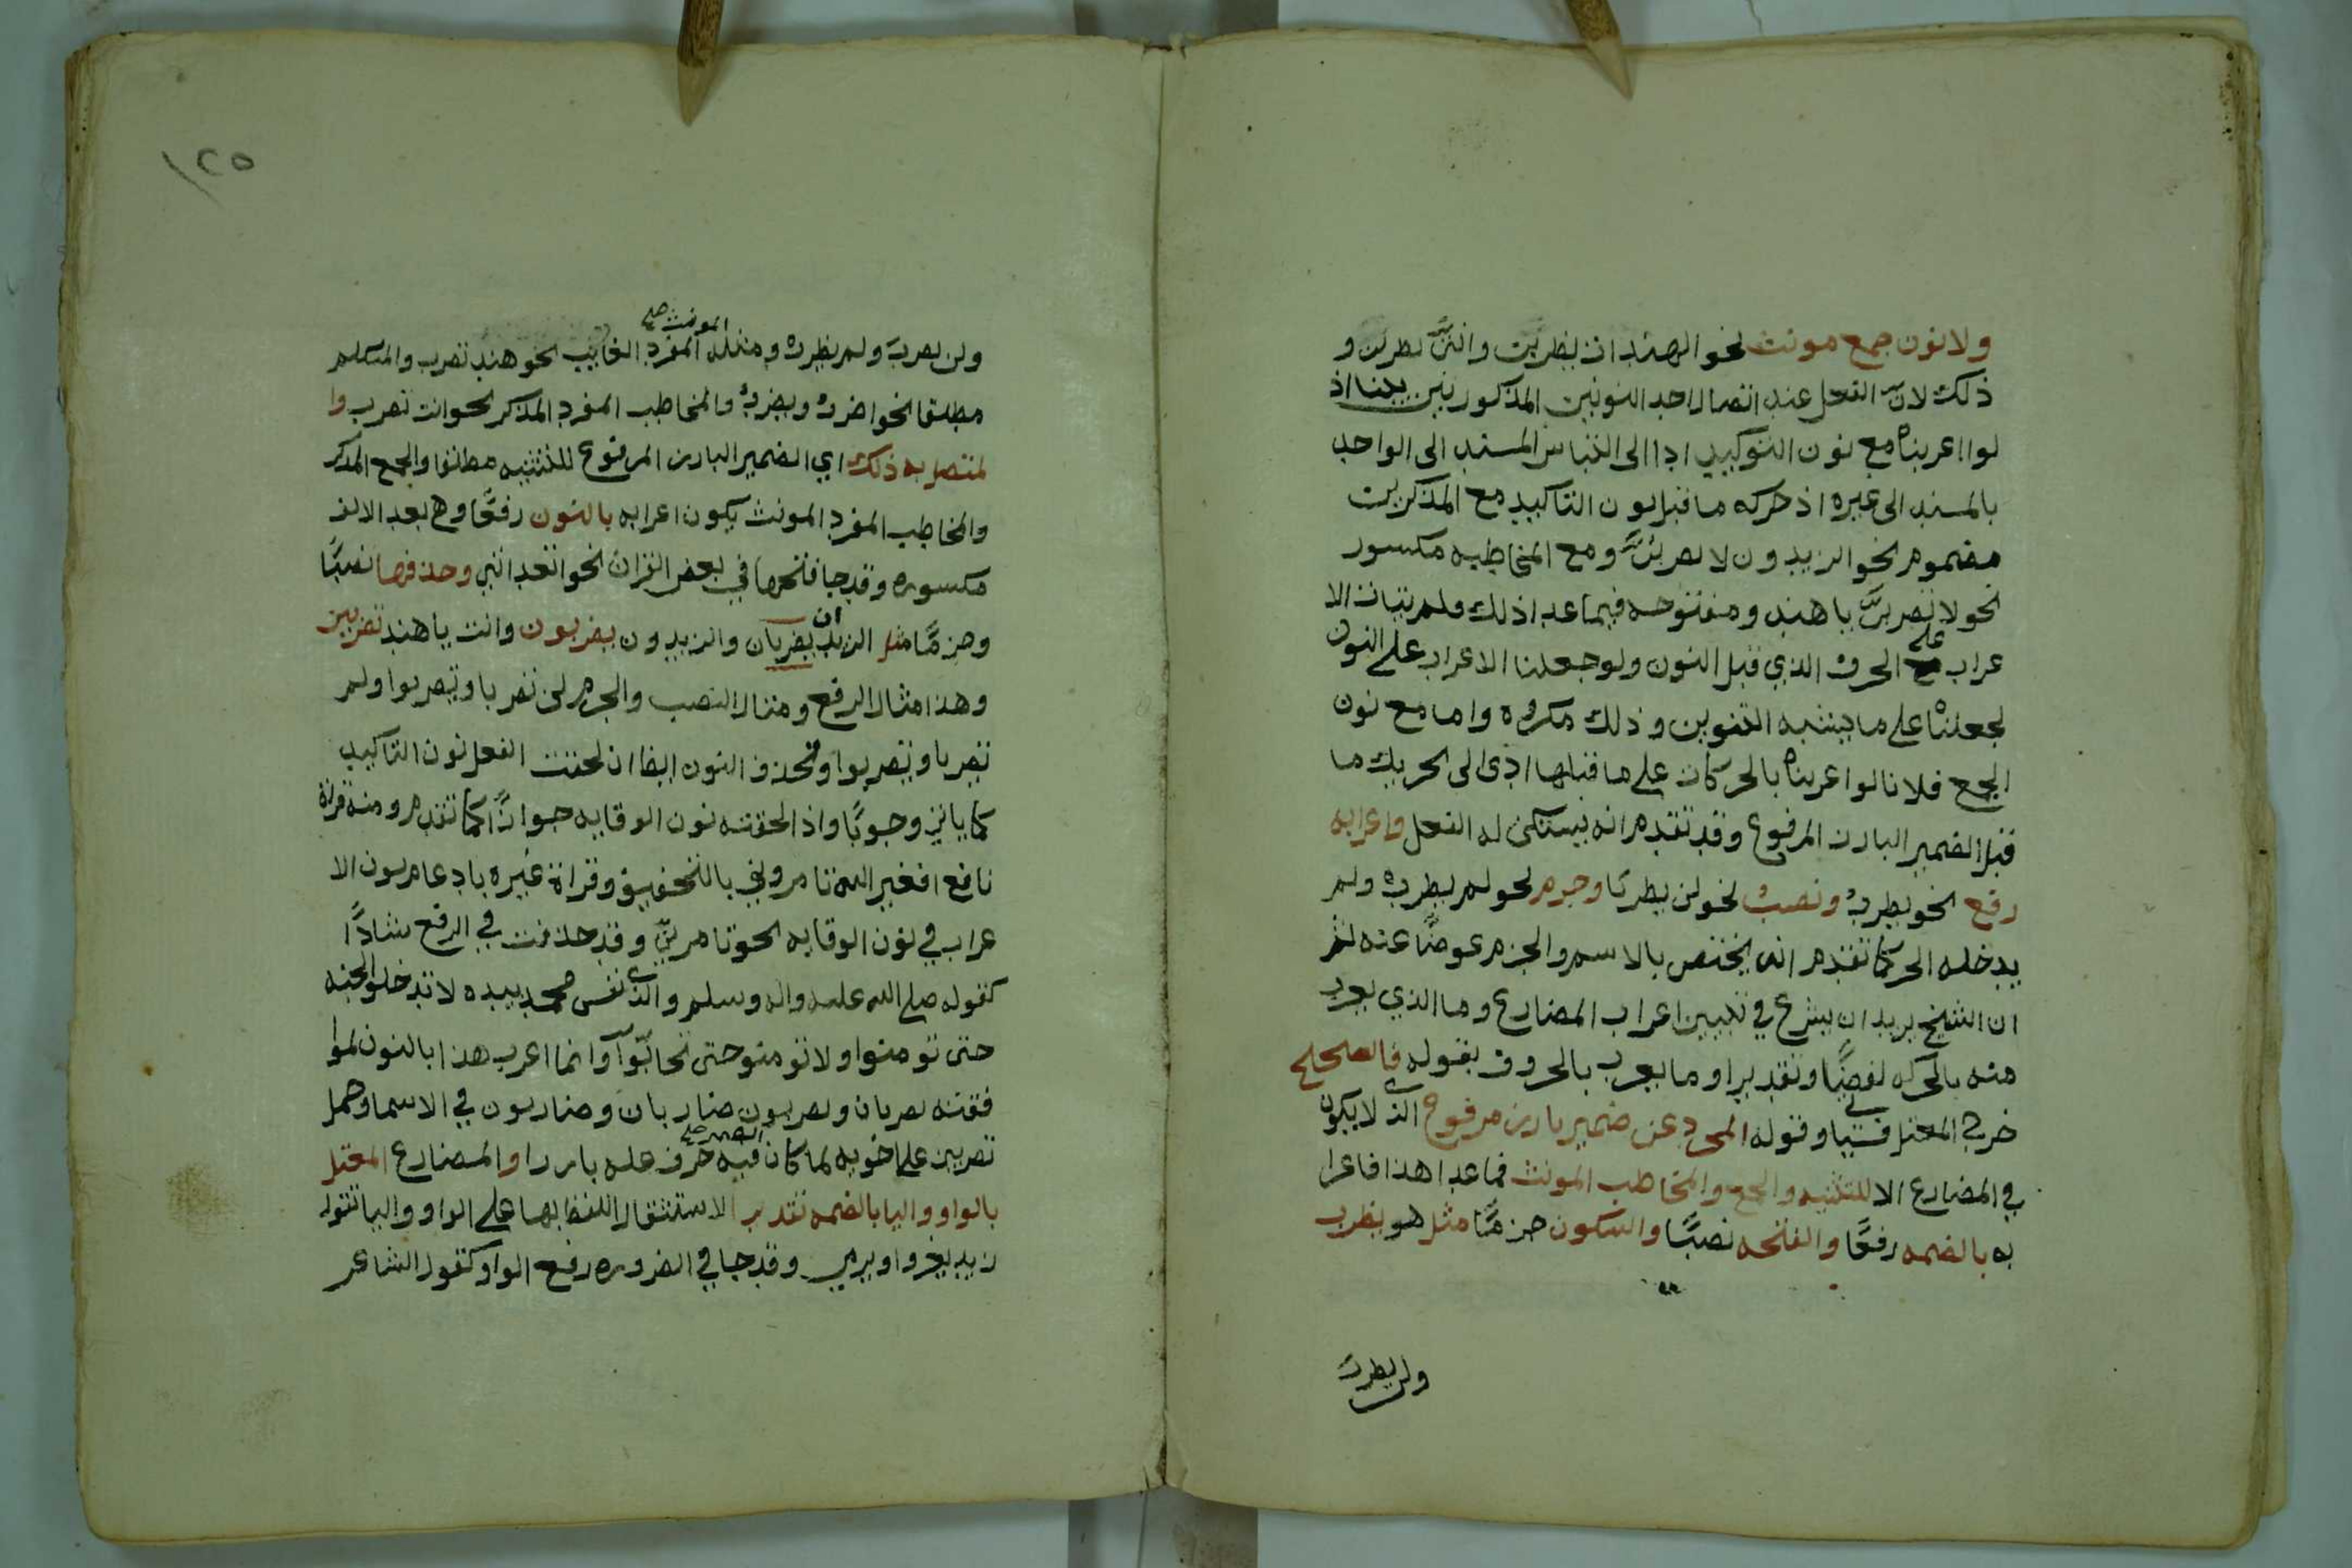 ولا نون جمع مونث نحو الهندات يضربن وانتن تضربن و
ذلك لان الفعل عند اتصال احد النونين المذكورتين يبنا اذ
لوا اعربناه مع نون التوكيد ادا الى التباس المسند الى الواحد
بالمسند الى غيره اذ حركه ما قبل نون التاكيد مع المذكرين
مضموم نحو الزيدون لا تضربن ومع المخاطبه مكسور
نحو لا تضربن يا هند ومفتوحه فيما عدا ذلك فلم يتات الا
عراب على الحرف الذي قبل النون ولو جعلنا الاعراب على النون
لجعلناه على ما يشبه التنوين وذلك مكروه واما مع نون
الجمع فلانا لو اعربناه بالحركات على ما قبلها ادى الى تحريك ما
قبل الضمير البارز المرفوع وقد تقدم انه يسكن له الفعل واعرابه
رفع نحو يضرب ونصب نحو لن يضربا وجزم نحو لم يضرب ولم
يدخله الجر كما تقدم انه يختص بالاسم والجزم عوضًا عنه ثم
ان الشيخ يريد ان يشرع في تبيين اعراب المضارع وما الذي يعرب
منه بالحركه لفضًا وتقديرا وما يعرب بالحروف بقوله فالصحيح
خرج المعتل فسياتي وقوله المجرد عن ضمير بارز مرفوع الذي لا يكون
في المضارع الا للتثنيه والجمع والمخاطب المونث فما عدا هذا فاعرا
به بالضمه رفعًا والفتحه نصبًا والسكون جزمًا مثل هو يضرب
ولن يضرب
١٢٥
المونث صح
ولن يضرب ولم يضرب ومثله المفرد الغايب نحو هند تضرب والمتكلم
مطلقا نحو اضرب ونضرب والمخاطب المفرد المذكر نحو انت تضرب وا
لمتصل به ذلك اي الضمير البارز المرفوع للتثنيه مطلقا والجمع المذكر
والمخاطب المفرد المونث يكون اعرابه بالنون رفعًا وهي بعد الالف
مكسوره وقد جا فتحها في بعض القران نحو اتعدانني وحذفها نصبًا
وجزمًا مثل الزيدان يضربان والزيدون يضربون وانت يا هند تضربين
وهذا مثال الرفع ومثال النصب والجزم لن تضربا وتضربوا ولم
تضربا وتضربوا وتحذف النون ايضا ان لحقت الفعل نون التاكيد
كما ياتي وجوبًا واذ الحقته نون الوقايه جوازًا كما تقدم ومنه قراة
نافع افغير الله تامروني بالتخفيف وقراة غيره بادغام نون الا
عراب في نون الوقايه نحو تامرنيّ وقد حذفت في الرفع شاذًا
كقوله صلى الله عليه واله وسلم والذي نفس محمد بيده لا تدخلوا الجنه
حتى تومنوا ولا تومنو حتى تحابّوا وانما اعرب هذا بالنون لموا
فقته يضربان ويضربون ضاربان وضاربون في الاسما وحمل
تضربين على اخويه لما كان فيه الضمير صح حرف عله بارزا والمضارع المعتل
بالواو واليا بالضمه تقديرا لاستثقال اللفظ بها على الواو واليا تقول
زيد يغزوا ويرمي وقد جا في الضروره رفع الواو كقول الشاعر